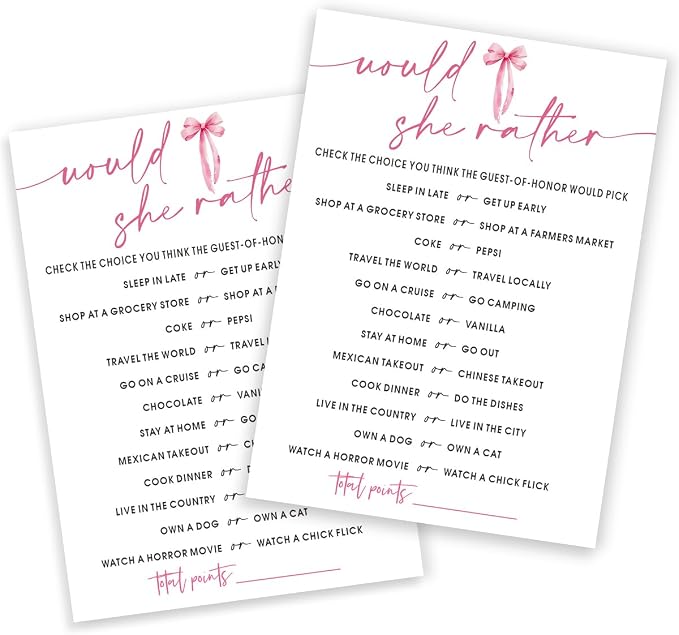 would
she rather
CHECK THE CHOICE YOU THINK THE GUEST-OF-HONOR
SLEEP IN LATE or GET UP EARLY
SHOP AT A GROCERY STORE or SHOP AT A
COKE or PEPSI
TRAVEL THE WORLD or TRAVEL
GO ON A CRUISE or GO CA
CHOCOLATE or VANI
STAY AT HOME or GO
MEXICAN TAKEOUT or CH
COOK DINNER or D
LIVE IN THE COUNTRY or
OWN A DOG or OWN A CAT
WATCH A HORROR MOVIE or WATCH A CHICK FLICK
total points
would
she rather
CHECK THE CHOICE YOU THINK THE GUEST-OF-HONOR WOULD PICK
SLEEP IN LATE or GET UP EARLY
SHOP AT A GROCERY STORE or SHOP AT A FARMERS MARKET
COKE or PEPSI
TRAVEL THE WORLD or TRAVEL LOCALLY
GO ON A CRUISE or GO CAMPING
CHOCOLATE or VANILLA
STAY AT HOME or GO OUT
MEXICAN TAKEOUT or CHINESE TAKEOUT
COOK DINNER or DO THE DISHES
LIVE IN THE COUNTRY or LIVE IN THE CITY
OWN A DOG or OWN A CAT
WATCH A HORROR MOVIE or WATCH A CHICK FLICK
total points